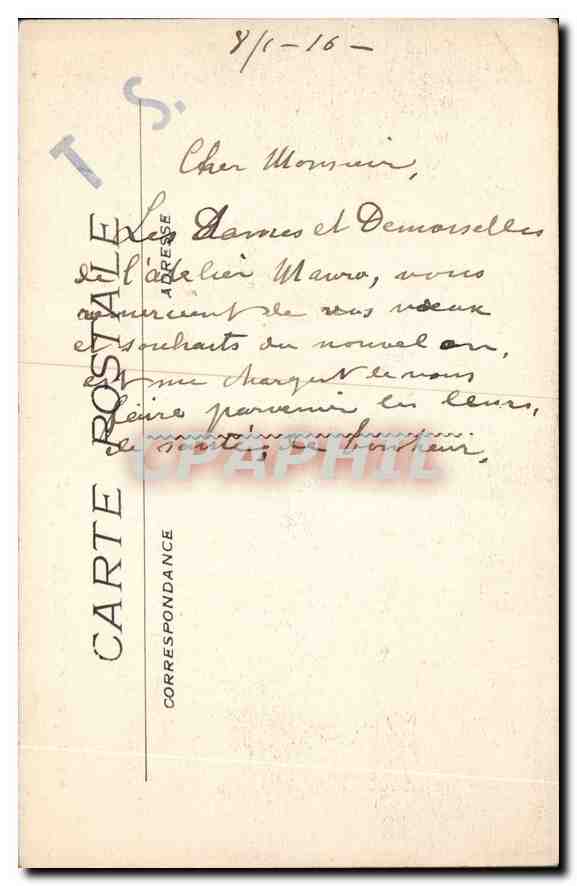 8/1 - 16 -
T S.
Cher Monsieur,
Les Dames et Demoiselles
de l'atelier Mauro, vous
remercient de vos vœux
et souhaits du nouvel an,
et me chargent de vous
faire parvenir les leurs,
de santé, de bonheur.
CARTE POSTALE
ADRESSE
CORRESPONDANCE
CPAPHIL